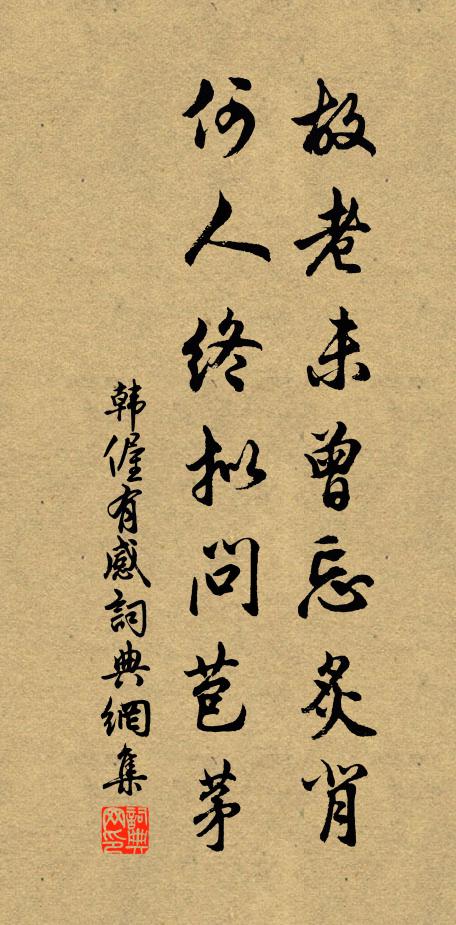 故老未曾忘炙背
何人终拟问苞茅
韩偓有感詞典網集
詞典网印